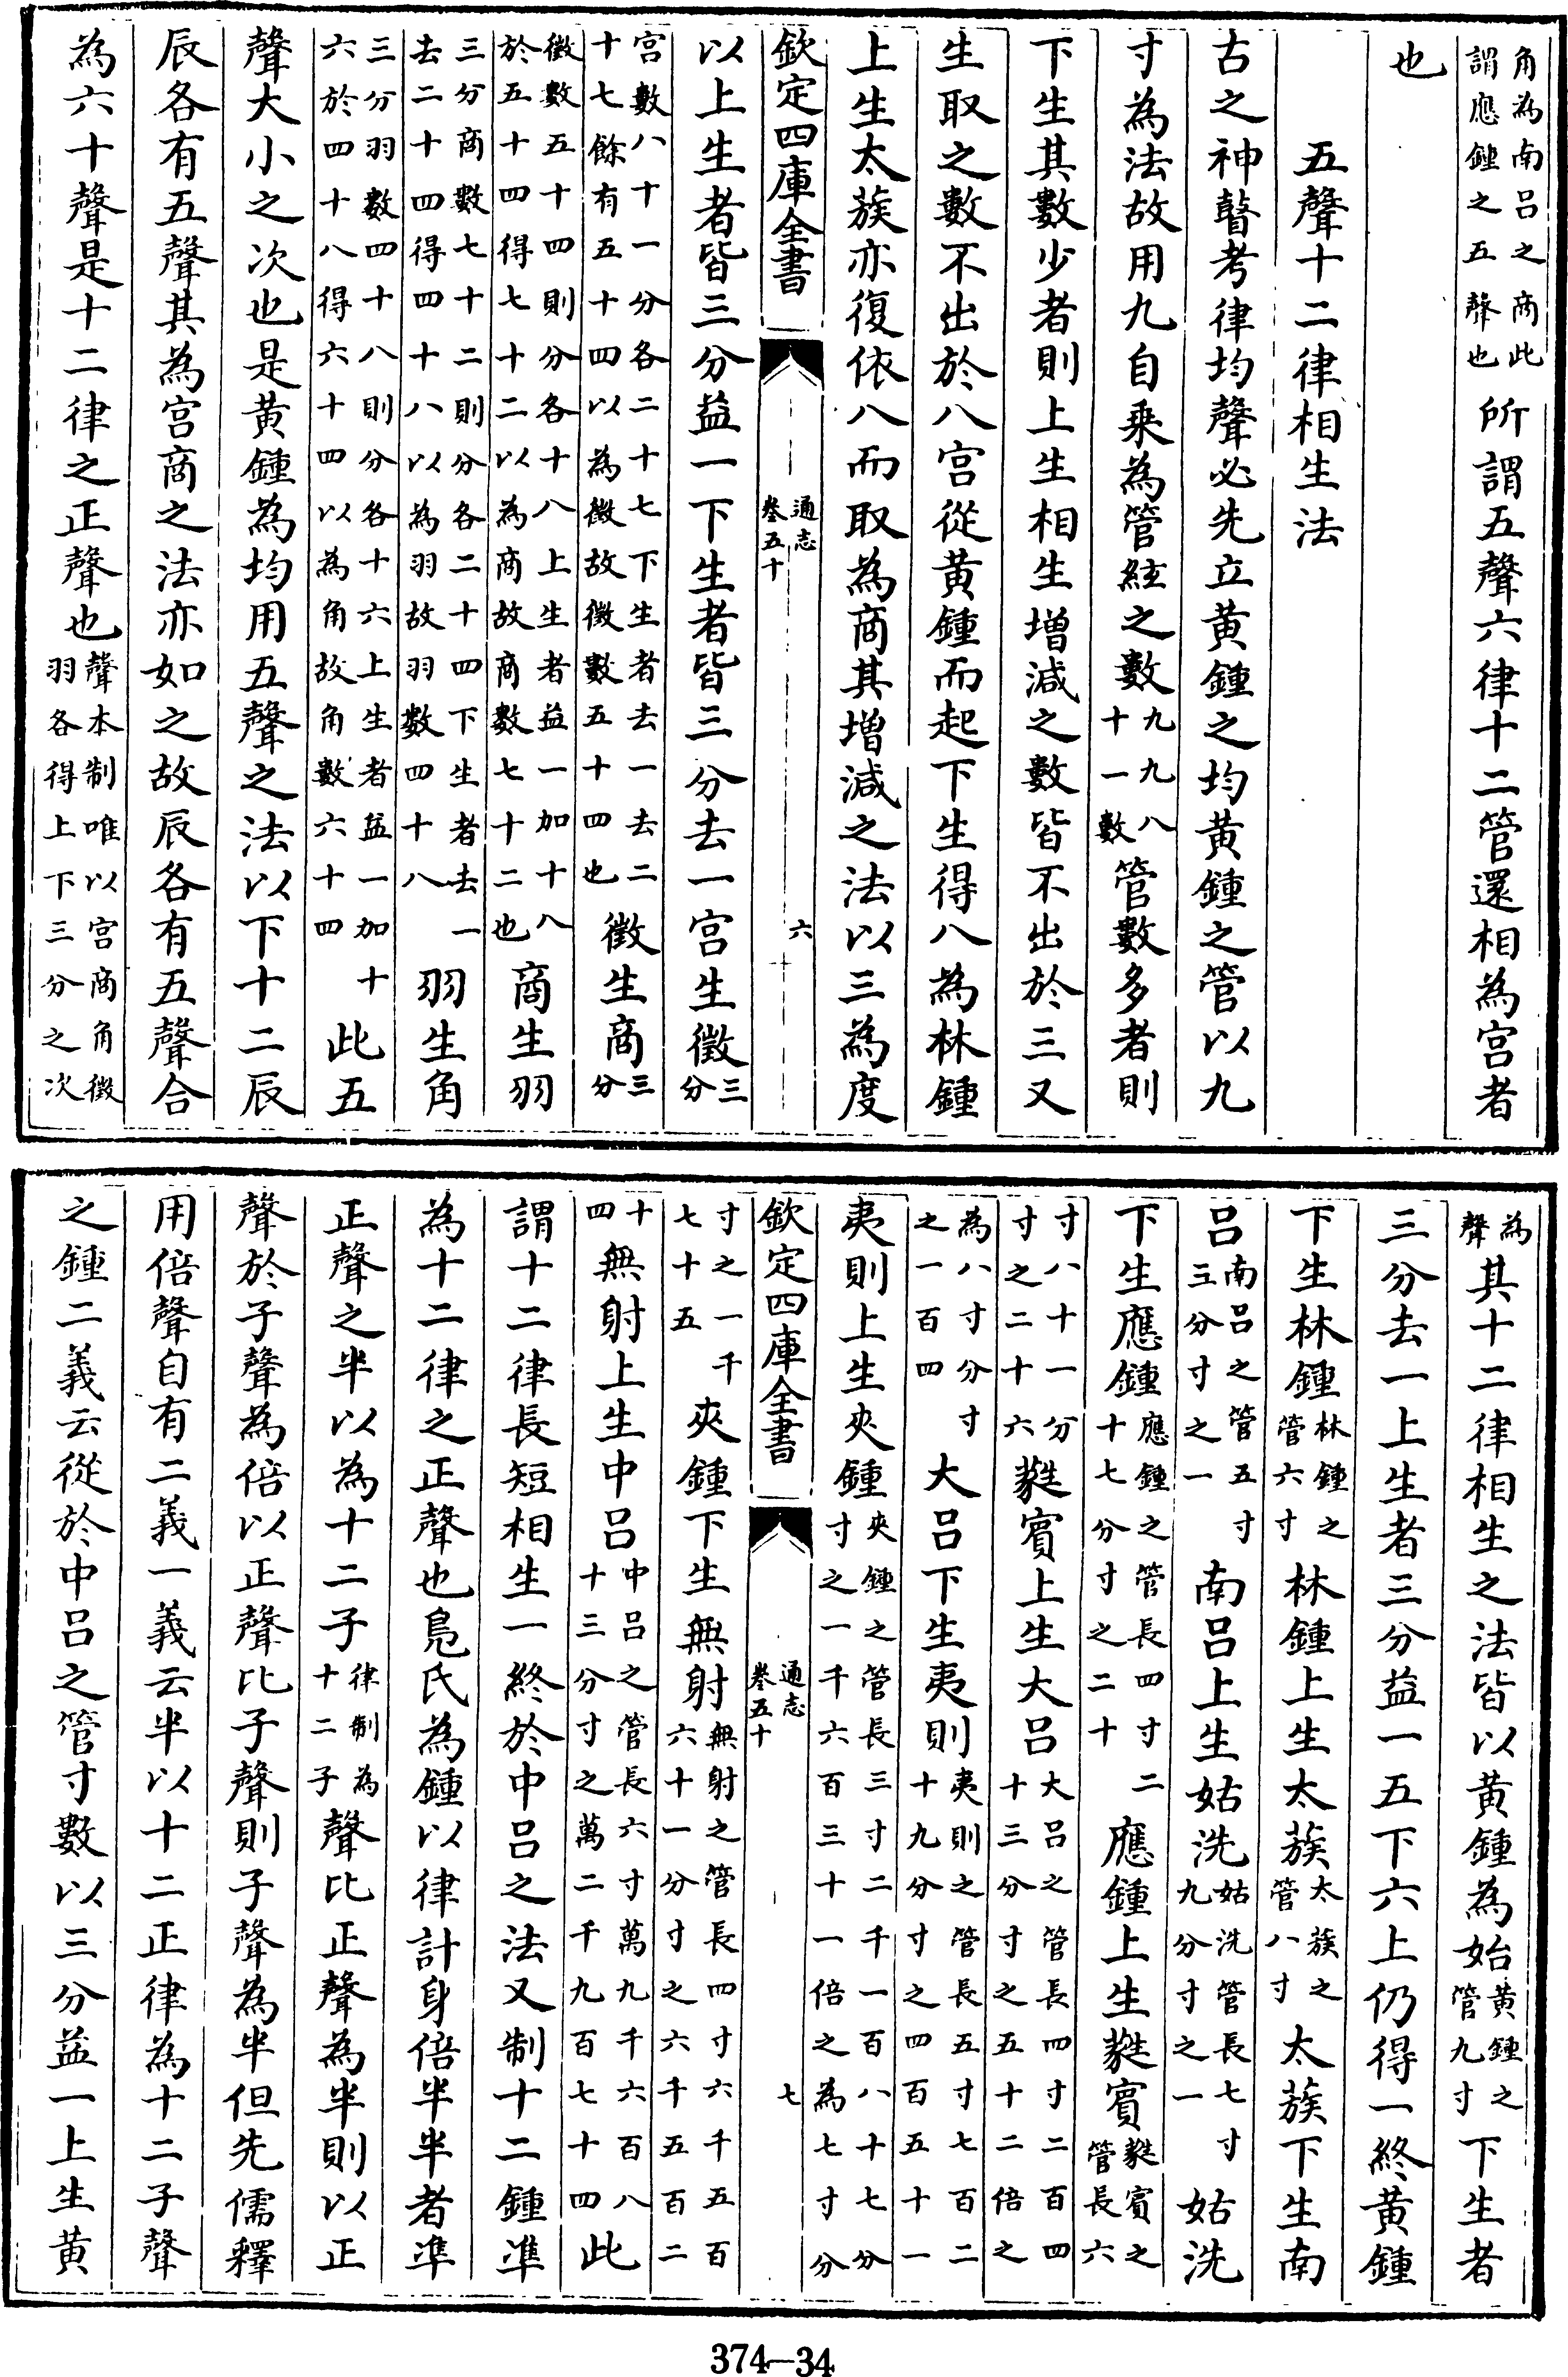 角為南呂之商此謂應鍾之五聲也所謂五聲六律十二管還相為宮者
也
五聲十二律相生法
古之神瞽考律均聲必先立黄鍾之均黄鍾之管以九
寸為法故用九自乘為管絃之數九九八十一數管數多者則
下生其數少者則上生相生增減之數皆不出於三又
生取之數不出於八宮從黄鍾而起下生得八為林鍾
上生太蔟亦復依八而取為商其增減之法以三為度
欽定四庫全書 通志卷五十 六
以上生者皆三分益一下生者皆三分去一宮生徵三分
宮數八十一分各二十七下生者去一去二十七餘有五十四以為徵故徵數五十四也徵生商三分
徵數五十四則分各十八上生者益一加十八於五十四得七十二以為商故商數七十二也商生羽
三分商數七十二則分各二十四下生者去一去二十四得四十八以為羽故羽數四十八羽生角
三分羽數四十八則分各十六上生者益一加十六於四十八得六十四以為角故角數六十四此五
聲大小之次也是黄鍾為均用五聲之法以下十二辰
辰各有五聲其為宮商之法亦如之故辰各有五聲合
為六十聲是十二律之正聲也聲本制唯以宮商角徵羽各得上下三分之次
為聲其十二律相生之法皆以黄鍾為始黄鍾之管九寸下生者
三分去一上生者三分益一五下六上仍得一終黄鍾
下生林鍾林鍾之管六寸林鍾上生太蔟太蔟之管八寸太蔟下生南
呂南呂之管五寸三分寸之一南呂上生姑洗姑洗管長七寸九分寸之一姑洗
下生應鍾應鍾之管長四寸二十七分寸之二十應鍾上生蕤賓蕤賓之管長六
寸八十一分寸之二十六蕤賓上生大呂大呂之管長四寸二百四十三分寸之五十二倍之
為八寸分寸之一百四大呂下生夷則夷則之管長五寸七百二十九分寸之四百五十一
夷則上生夾鍾夾鍾之管長三寸二千一百八十七分寸之一千六百三十一倍之為七寸分
欽定四庫全書 通志卷五十 七
寸之一千七十五夾鍾下生無射無射之管長四寸六千五百六十一分寸之六千五百二
十四無射上生中呂中呂之管長六寸萬九千六百八十三分寸之萬二千九百七十四此
謂十二律長短相生一終於中呂之法又制十二鍾準
為十二律之正聲也鳧氏為鍾以律計身倍半半者準
正聲之半以為十二子律制為十二子聲比正聲為半則以正
聲於子聲為倍以正聲比子聲則子聲為半但先儒釋
用倍聲自有二義一義云半以十二正律為十二子聲
之鍾二義云從於中呂之管寸數以三分益一上生黄
374—34